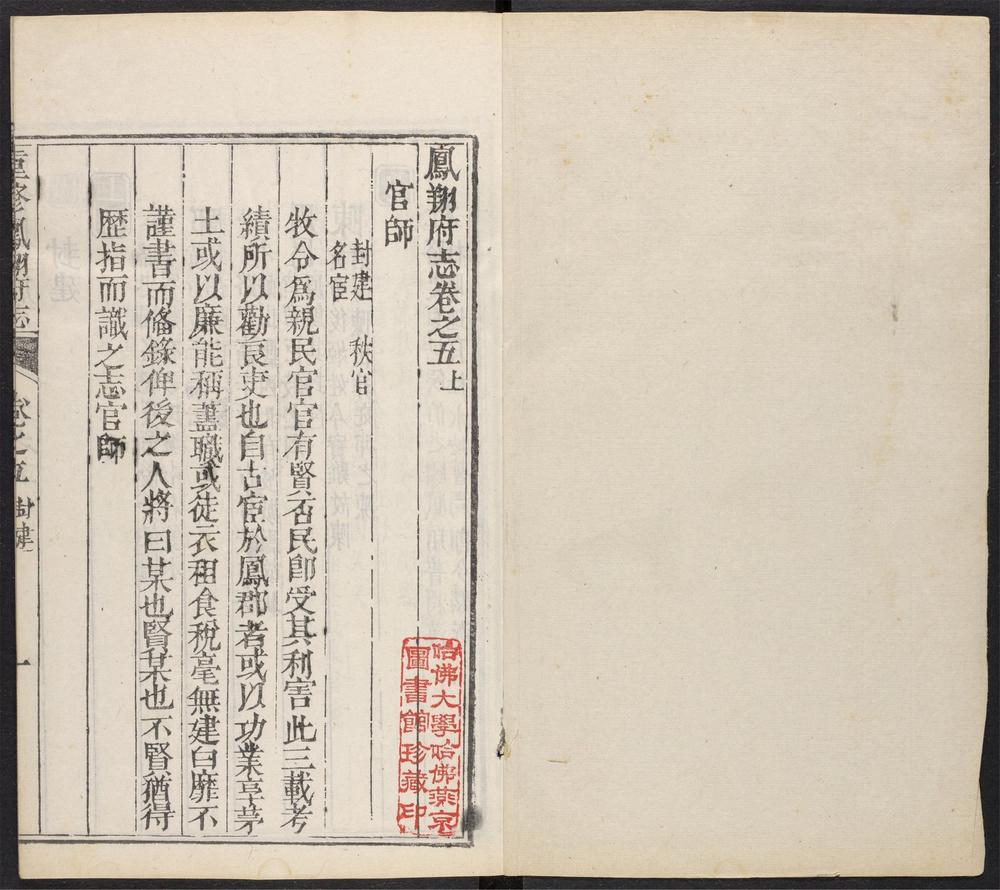 鳳翔府志卷之五上
官師
封建 秩官
名宦
牧令為親民官官有賢否民卽受其利害此三載考
績所以勸良吏也自古宦於鳳郡者或以功業享茅
土或以廉能稱藎職或徒衣租食稅毫無建白靡不
謹書而偹錄俾後之人將曰某也賢某也不賢猶得
歷指而識之志官師
重修鳳翔府志
卷之五 封建 一
哈佛大學哈佛燕京
圖書館珍藏印